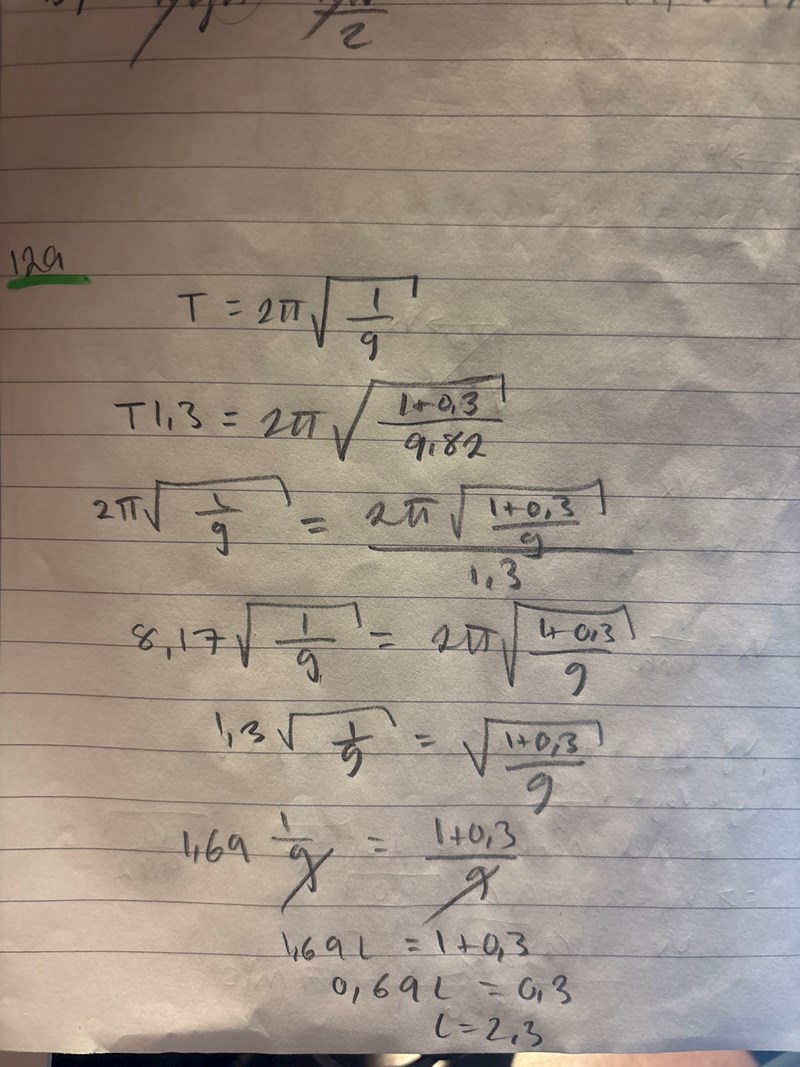 2
12a
T = 2π√(l/g)
T1,3 = 2π√((l+0,3)/9,82)
2π√(l/g) = (2π√((l+0,3)/g))/1,3
8,17√(l/g) = 2π√((l+0,3)/g)
1,3√(l/g) = √((l+0,3)/g)
1,69 l/g = (l+0,3)/g
1,69l = l+0,3
0,69l = 0,3
l=2,3